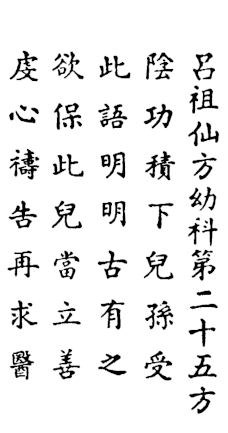 呂祖仙方幼科第二十五方
陰功積下兒孫受
此語明明古有之
欲保此兒當立善
虔心禱告再求醫